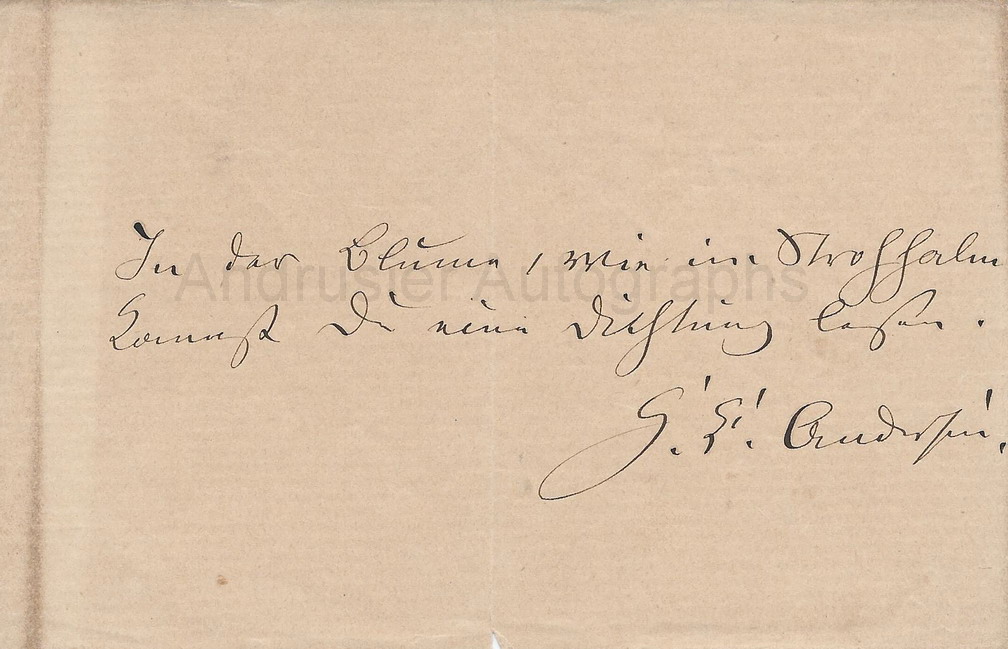 In der Blume, wie im Strohhalm
Andruster Autographs
Kannst Du eine Dichtung lesen.
H. C. Andersen.